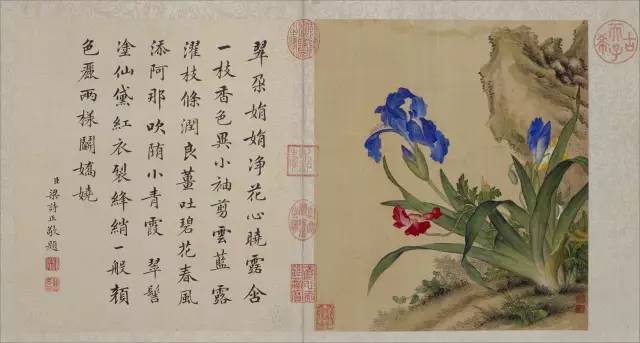 翠朶娟娟净花心曉露含
一枝香色異小袖剪雲藍 露
濯枝條潤良薑吐碧花春風
添阿那吹墮小青霞 翠髻
塗仙黛紅衣裂絳綃一般顏
色麗兩樣鬬嬌嬈
臣梁詩正敬題
古希天子